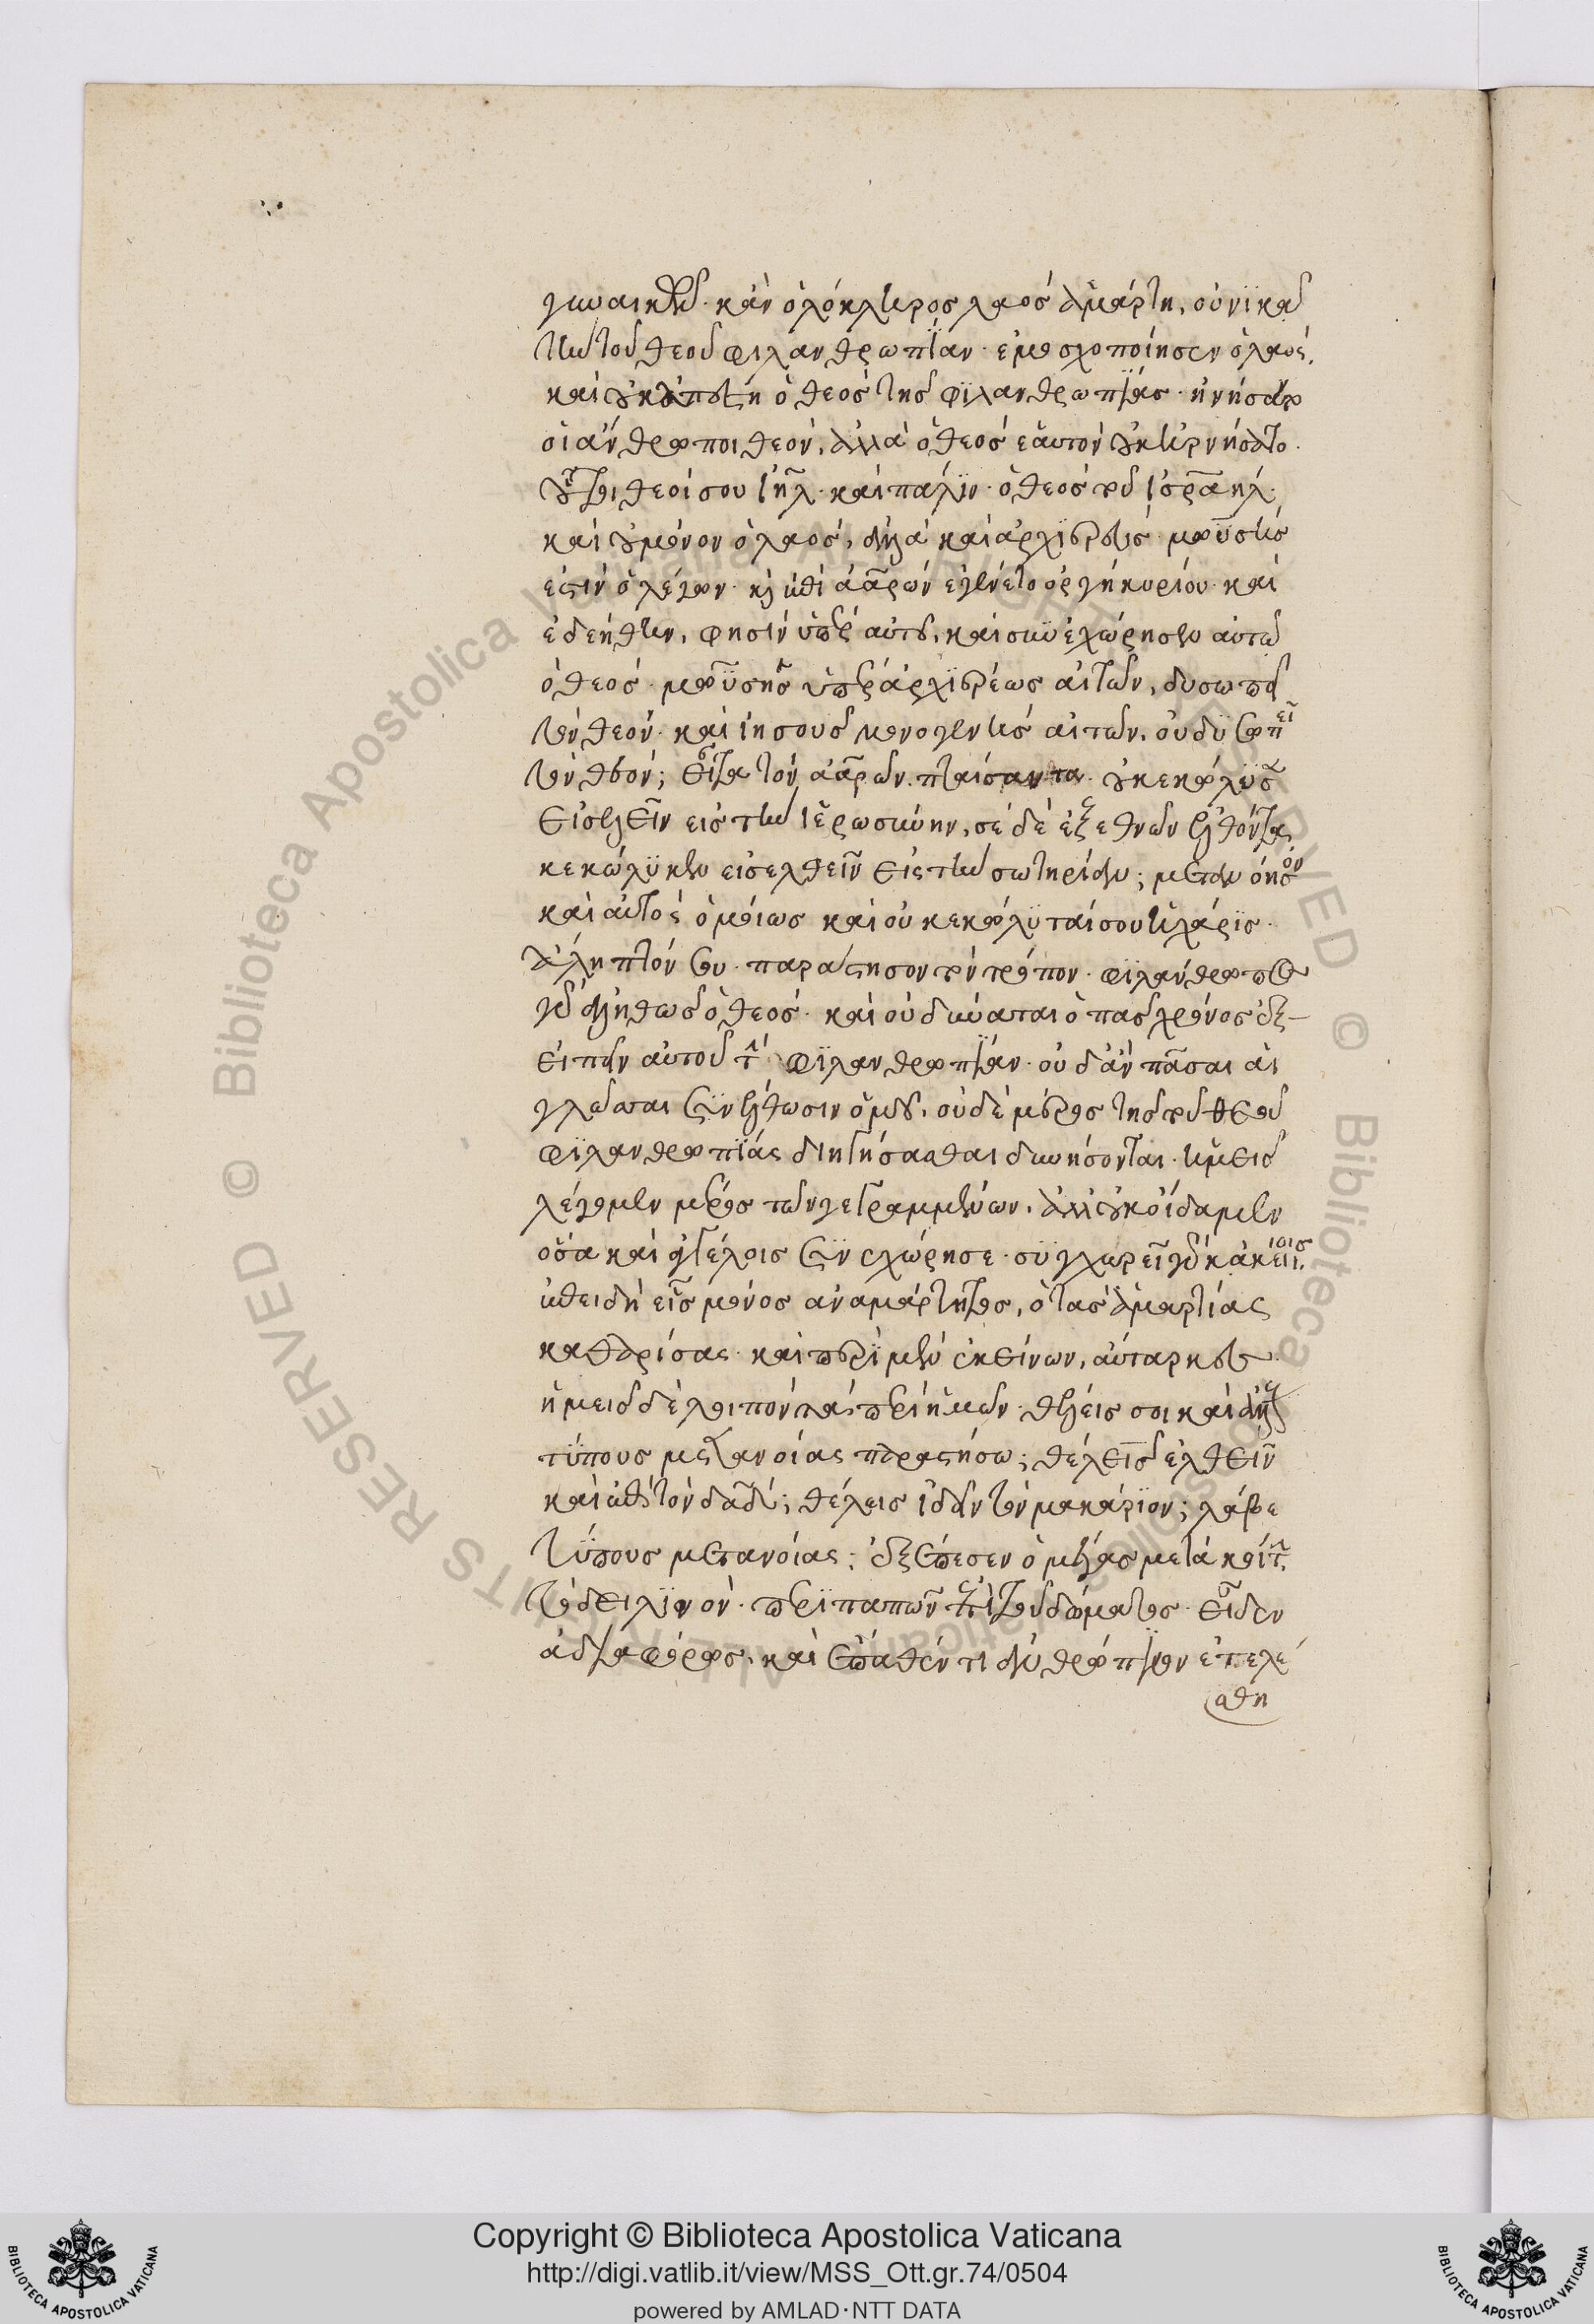 γυναικῶν· κἂν ὁλόκληρος λαὸς ἁμάρτη, οὐ νικᾶ
τὴν τοῦ θεοῦ φιλανθρωπίαν· ἐμοσχοποίησεν ὁ λαός,
καὶ οὐκ ἀπέστη ὁ θεὸς τῆς φιλανθρωπίας· ἠρνήσαντο
οἱ ἄνθρωποι θεόν, ἀλλὰ ὁ θεὸς ἑαυτὸν οὐκ ἠρνήσατο·
οὗτοι θεοί σου ἰῆλ· καὶ πάλιν· ὁ θεὸς τοῦ ἰσραὴλ·
καὶ οὐ μόνον ὁ λαός, ἀλλὰ καὶ ἀρχιερεὺς· μωϋσῆς
ἐστὶν ὁ λέγων· καὶ ἐπὶ ἀαρών ἐγένετο ὀργὴ κυρίου· καὶ
ἐδεήθην, φησὶν ὑπὲρ αὐτοῦ, καὶ συνεχώρησεν αὐτῶ
ὁ θεός· μωϋσῆς ὑπὲρ ἀρχιερέως αἰτῶν, δυσωπεῖ
τὸν θεόν· καὶ ἰησοῦς μονογενὴς αἰτῶν, οὐ δυσωπεῖ
τὸν θεόν; εἶτα τὸν ἀαρών πταίσαντα οὐκ ἐκώλυσεν
εἰσελθεῖν εἰς τὴν ἱερωσύνην, σὲ δὲ ἐξ ἐθνῶν ἐλθόντα,
κεκώλυκεν εἰσελθεῖν εἰς τὴν σωτηρίαν; μετανόησον
καὶ αὐτὸς ὁμοίως καὶ οὐ κεκώλυταί σου ἡ χάρις·
ἄληπτόν σου παράστησον τὸν τρόπον· φιλάνθρωπος
γὰρ ἀληθῶς ὁ θεός· καὶ οὐ δύναται ὁ πᾶς χρόνος ἐξ-
ειπεῖν αὐτοῦ τὴν φιλανθρωπίαν· οὐδ' ἂν πᾶσαι αἱ
γλῶσσαι συνέλθωσιν ὁμοῦ, οὐδὲ μέρος τῆς τοῦ θεοῦ
φιλανθρωπίας διηγήσασθαι δυνήσονται· ἡμεῖς
λέγομεν μέρος τῶν γεγραμμένων, ἀλλ' οὐκ οἴδαμεν
ὅσα καὶ ἀγγέλοις συνεχώρησε· συγχωρεῖ γὰρ κἀκείνοις
ἐπειδὴ εἷς μόνος ἀναμάρτητος, ὁ τὰς ἁμαρτίας
καθαρίσας· καὶ περὶ μὲν ἐκείνων, αὐτάρκως
ἡμεῖς δὲ λοιπὸν τὰ περὶ ἡμῶν· θέλεις σοι καὶ ἄλλους
τύπους μετανοίας παραστήσω; θέλεις ἐλθεῖν
καὶ ἐπὶ τὸν δαδ; θέλεις ἰδεῖν τὸν μακάριον; λάβε
τύπους μετανοίας; ἐξέπεσεν ὁ μέγας μετὰ κοίτην
τὸ δειλινὸν· περιπατῶν ἐπὶ τοῦ δώματος· εἶδεν
ἀδιαφόρως, καὶ ἔπαθέν τι ἀνθρώπινον ἐτελέ
σθη